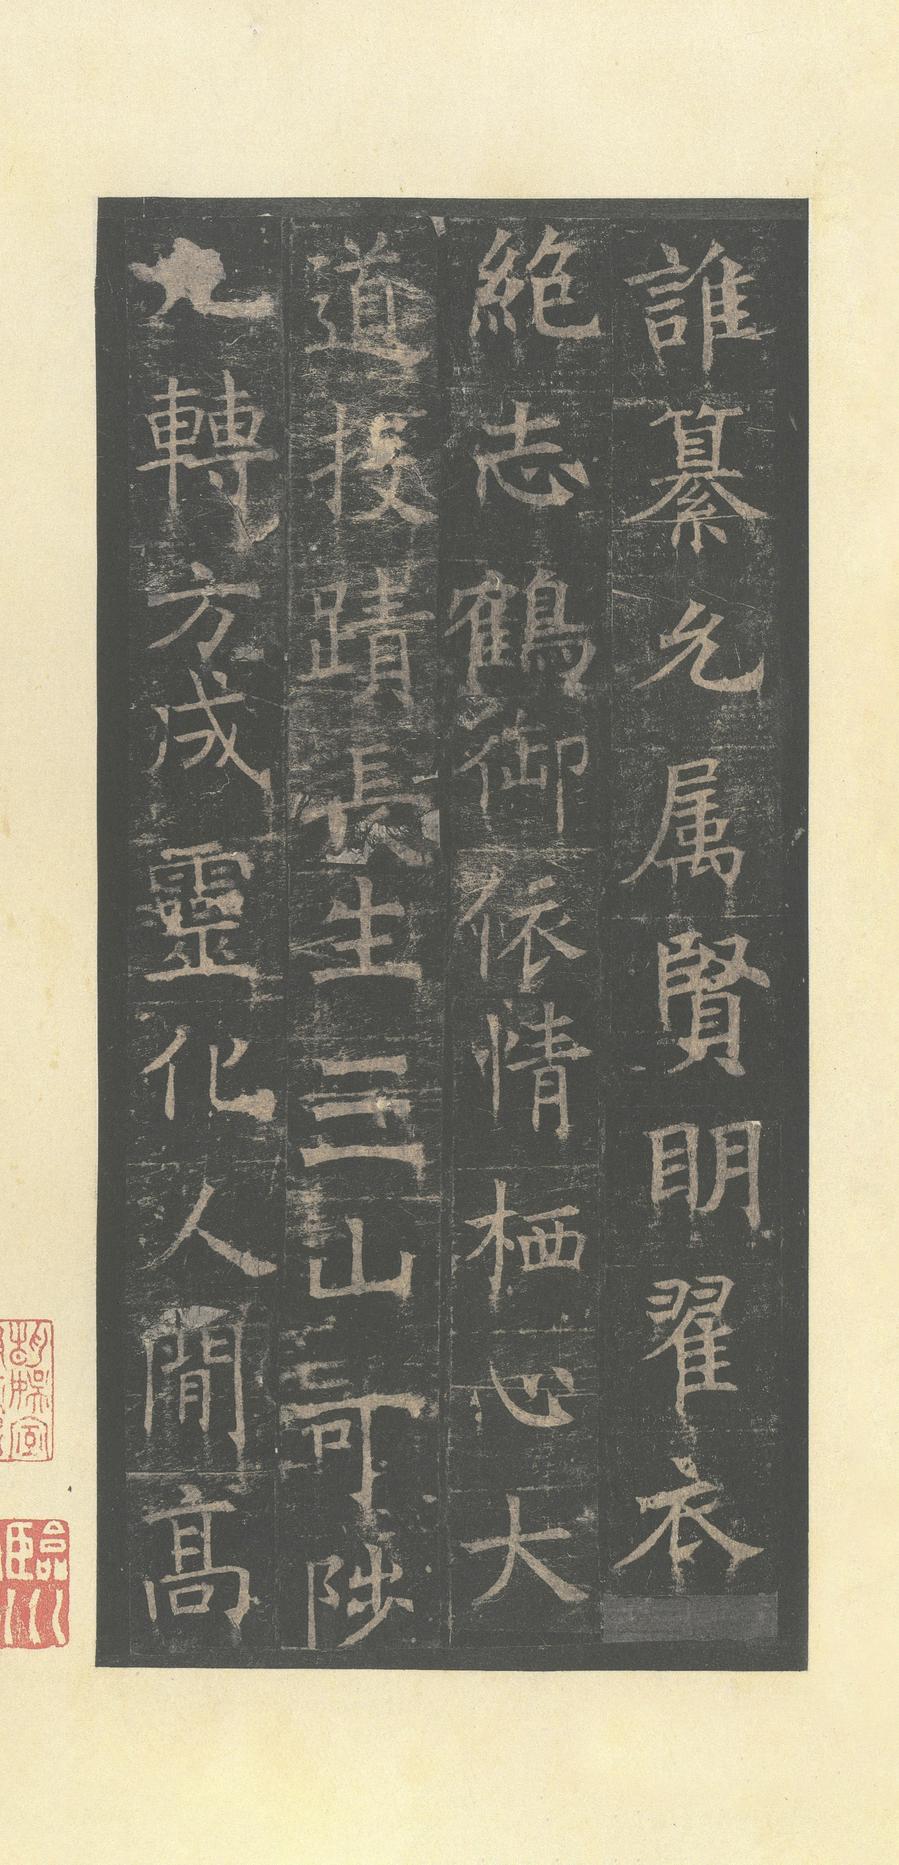 誰纂允属賢明翟衣
絶志鶴御依情栖心大
道投蹟長生三山可陟
九轉方成靈化人閒高
臨川